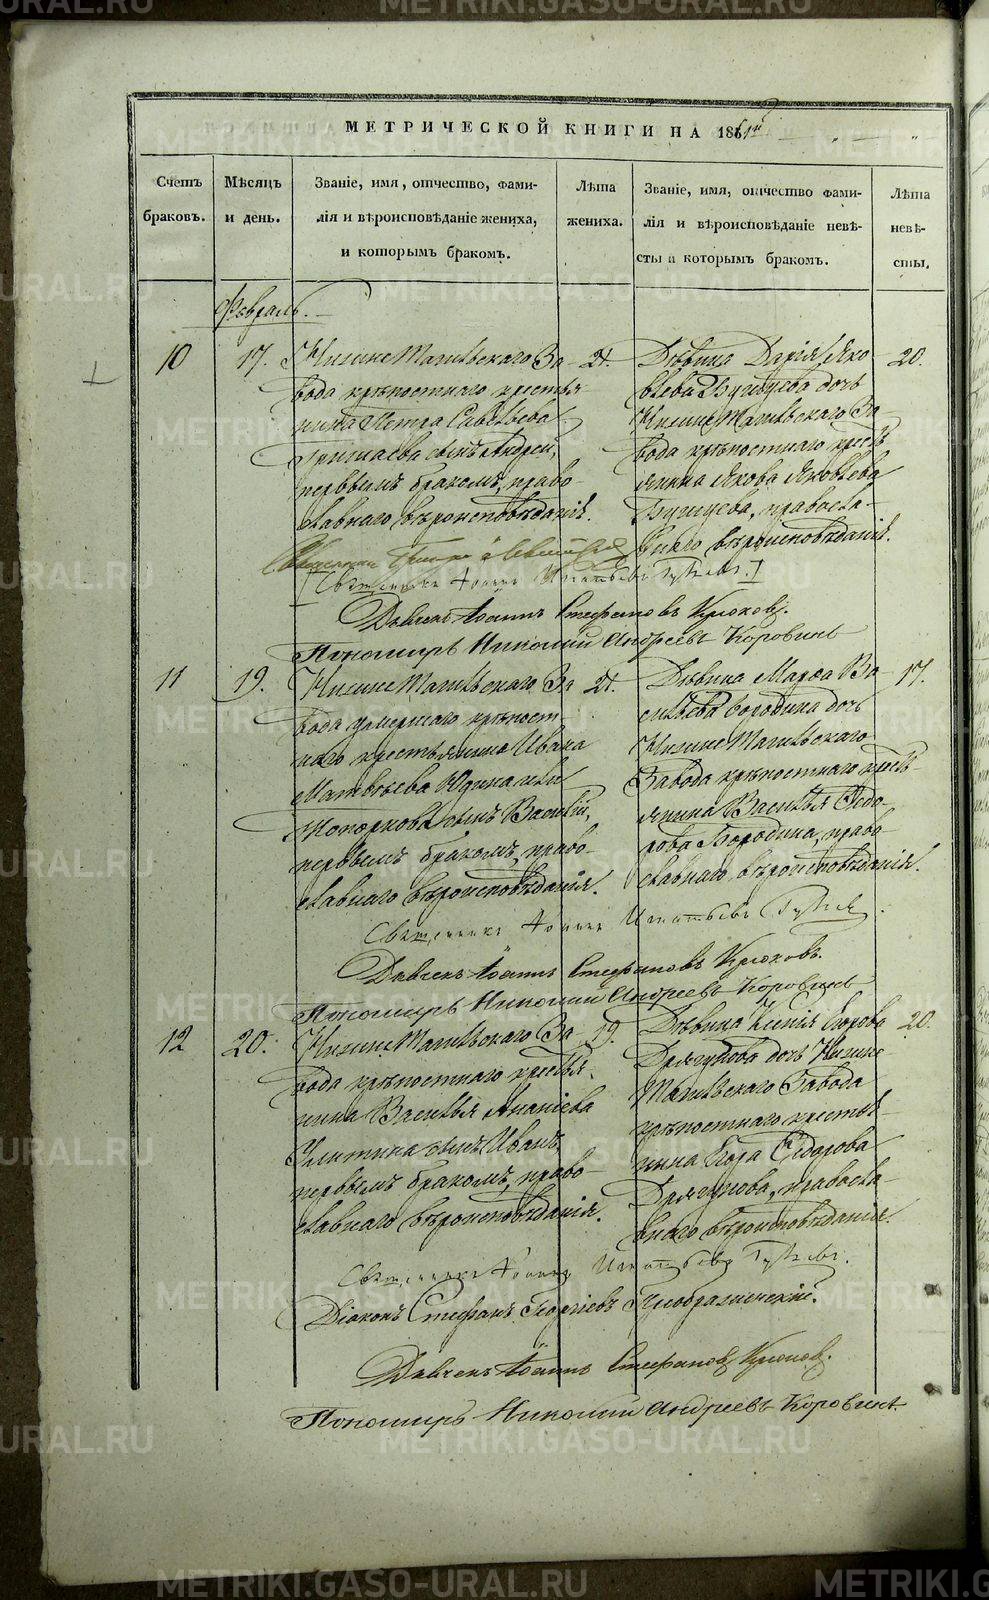 МЕТРИЧЕСКОЙ КНИГИ НА 1861й
Счетъ браковъ.
Мѣсяцъ и день.
Званіе, имя, отчество, фами-
лія и вѣроисповѣданіе жениха,
и которымъ бракомъ.
Лѣта
жениха.
Званіе, имя, отчество фами-
лія и вѣроисповѣданіе невѣ-
сты и которымъ бракомъ.
Лѣта
невѣ-
сты.
Февраль.
10
17.
Нижне Тагильскаго За-
вода крѣпостнаго крестья-
нина Петра Савельева
сынъ Андрей,
первымъ бракомъ, право-
славнаго вѣроисповѣданія.
21.
Дѣвица Дарія Яко-
влева дочь
Нижне Тагильскаго За-
вода крѣпостнаго кресть-
янина Якова Яковлева
православ-
наго вѣроисповѣданія.
20.
[Священникъ Іоаннъ Игнатьевъ]
Дьячекъ Іоаннъ Стефановъ Крюковъ.
Пономарь Николай Андреевъ Коровинъ
11
19.
Нижне Тагильскаго За-
вода умершаго крѣпост-
наго крестьянина Ивана
Матвѣева Юдина или
сынъ Василій,
первымъ бракомъ, право-
славнаго вѣроисповѣданія.
21.
Дѣвица Марѳа Ва-
сильева Бородина дочь
Нижне Тагильскаго
Завода крѣпостнаго кресть-
янина Василья Ѳедо-
рова Бородина, право-
славнаго вѣроисповѣданія.
17.
Священникъ Іоаннъ Игнатьевъ
Дьячекъ Іоаннъ Стефановъ Крюковъ.
Пономарь Николай Андреевъ Коровинъ
12
20.
Нижне Тагильскаго За-
вода крѣпостнаго крестья-
нина Василья Ананіева
Улитина сынъ Иванъ,
первымъ бракомъ, право-
славнаго вѣроисповѣданія.
19.
Дѣвица Ксенія Егорова
дочь Нижне
Тагильскаго Завода
крѣпостнаго крестья-
нина Егора Сидорова
православ-
наго вѣроисповѣданія.
20.
Священникъ Іоаннъ Игнатьевъ
Діаконъ Стефанъ Георгіевъ Преображенскій.
Дьячекъ Іоаннъ Стефановъ Крюковъ.
Пономарь Николай Андреевъ Коровинъ.
METRIKI.GASO-URAL.RU